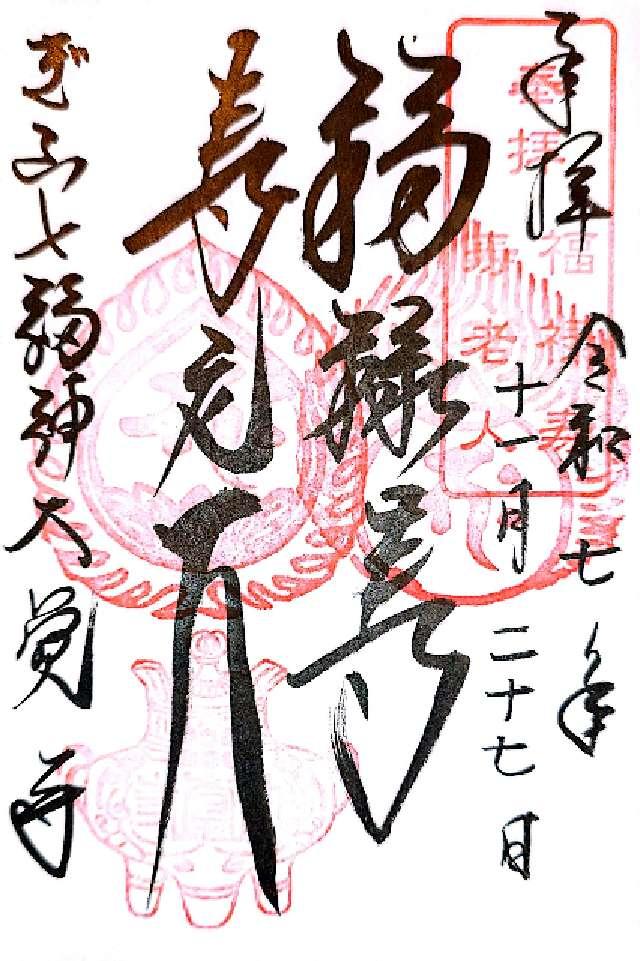 奉拝
令和七年
十一月二十七日
奉拝
福禄寿
寿老人
福禄寿
寿老人
ぎふ七福神大覚寺